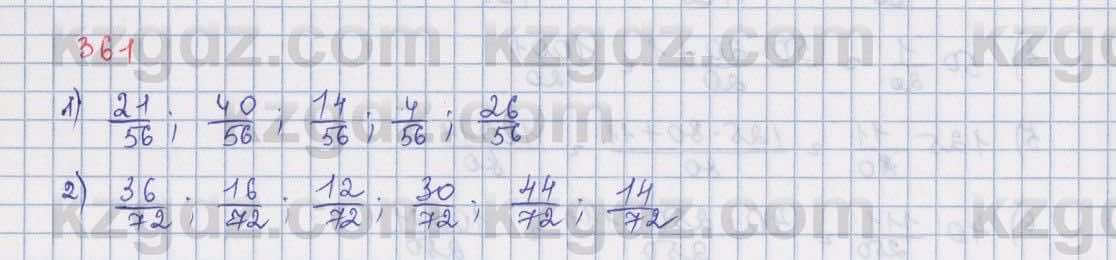 361
1) 21/56; 40/56; 14/56; 4/56; 26/56
2) 36/72; 16/72; 12/72; 30/72; 44/72; 14/72
kzgdz.com kzgdz.com kzgdz.com
kzgdz.com
kzgdz.com kzgdz.com kzgdz.com